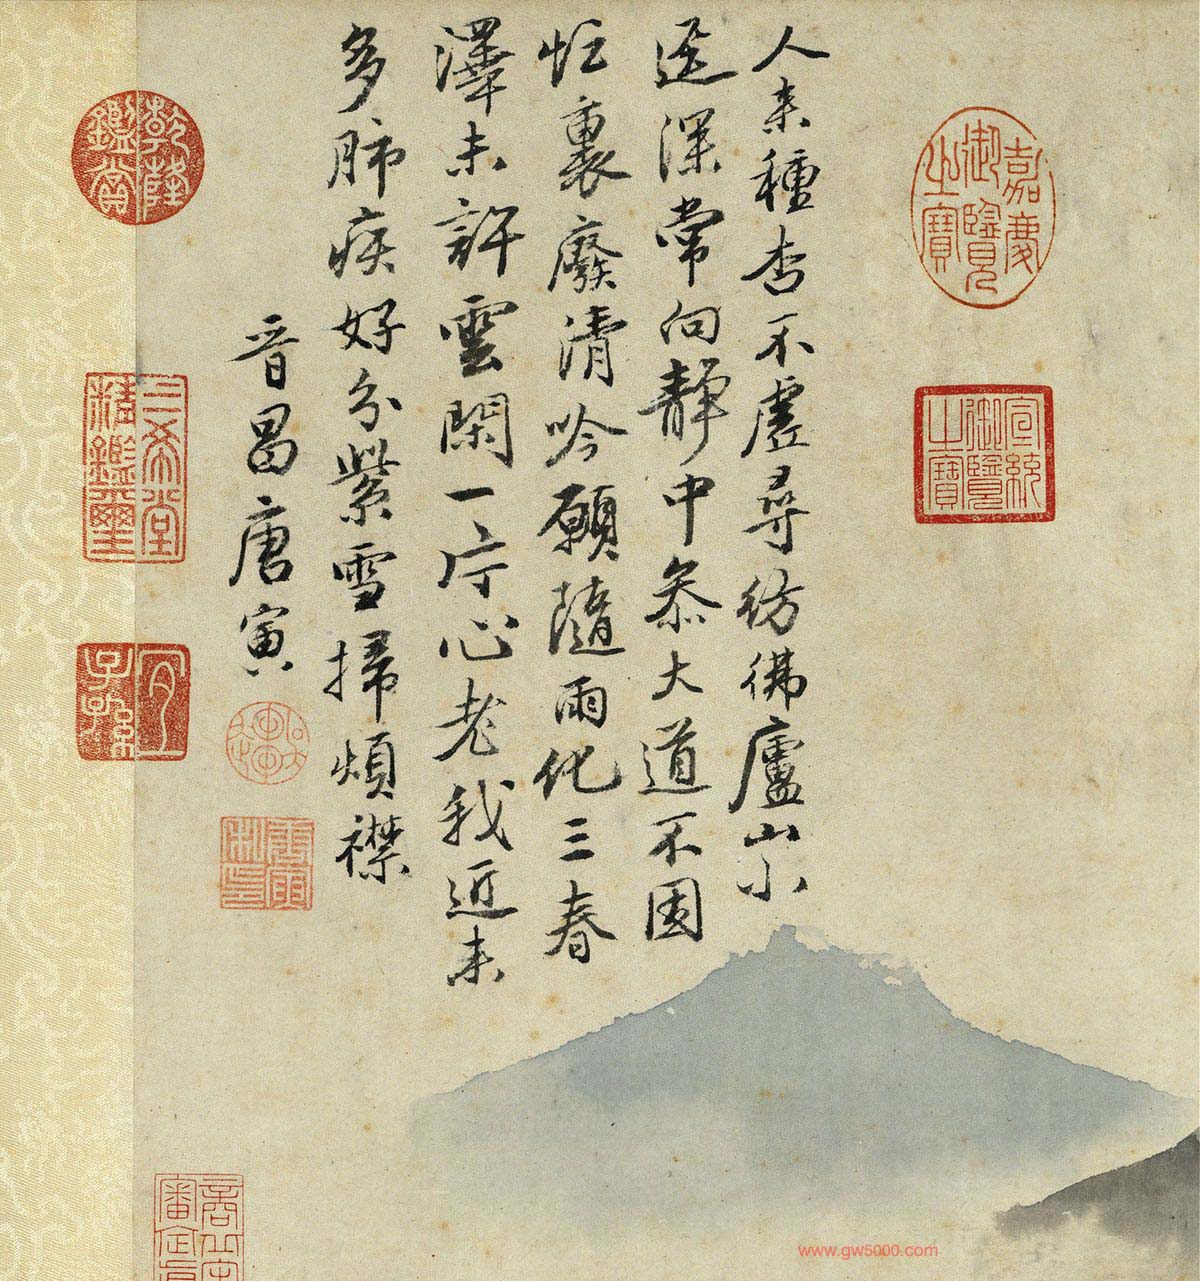 嘉慶御覽之寶
宣統御覽之寶
人来種杏不虛尋彷彿廬山小
逕深常向靜中參大道不因
忙裏廢清吟願隨雨化三春
澤未許雲閑一片心老我近来
多肺疾好分紫雪掃煩襟
晉昌唐寅
乾隆鑑賞
三希堂精鑑璽
宜子孫
www.gw5000.com